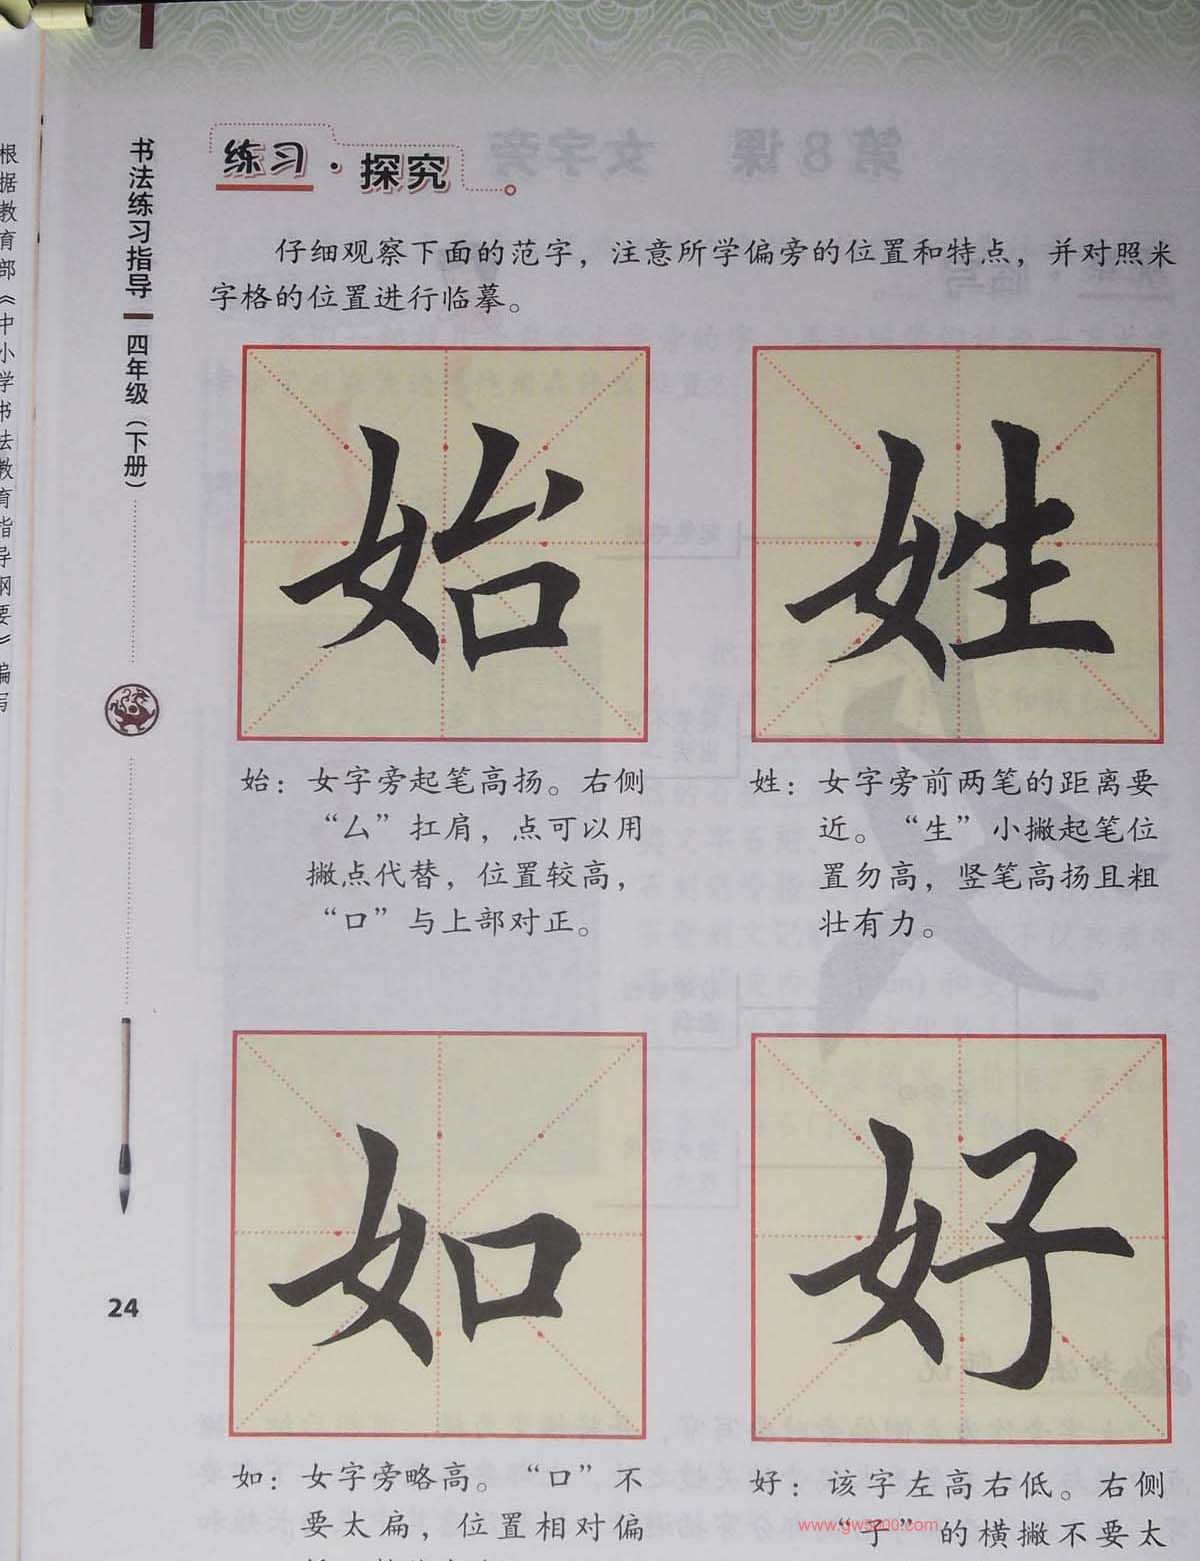 根据教育部《中小学书法教育指导纲要》编写
书法练习指导
四年级（下册）
24
练习·探究
仔细观察下面的范字，注意所学偏旁的位置和特点，并对照米
字格的位置进行临摹。
始
姓
始：女字旁起笔高扬。右侧
“厶”扛肩，点可以用
撇点代替，位置较高，
“口”与上部对正。
姓：女字旁前两笔的距离要
近。“生”小撇起笔位
置勿高，竖笔高扬且粗
壮有力。
如
好
如：女字旁略高。“口”不
要太扁，位置相对偏
好：该字左高右低。右侧
“子”的横撇不要太
www.gw5000.com